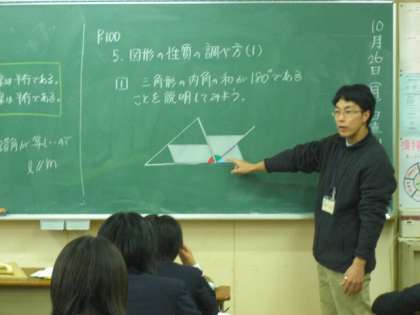 P.100
5. 図形の性質の調べ方(1)
1 三角形の内角の和が180°である
ことを説明してみよう。
は平行である。
は平行である。
錯角が等しいので
l // m
10月26日(